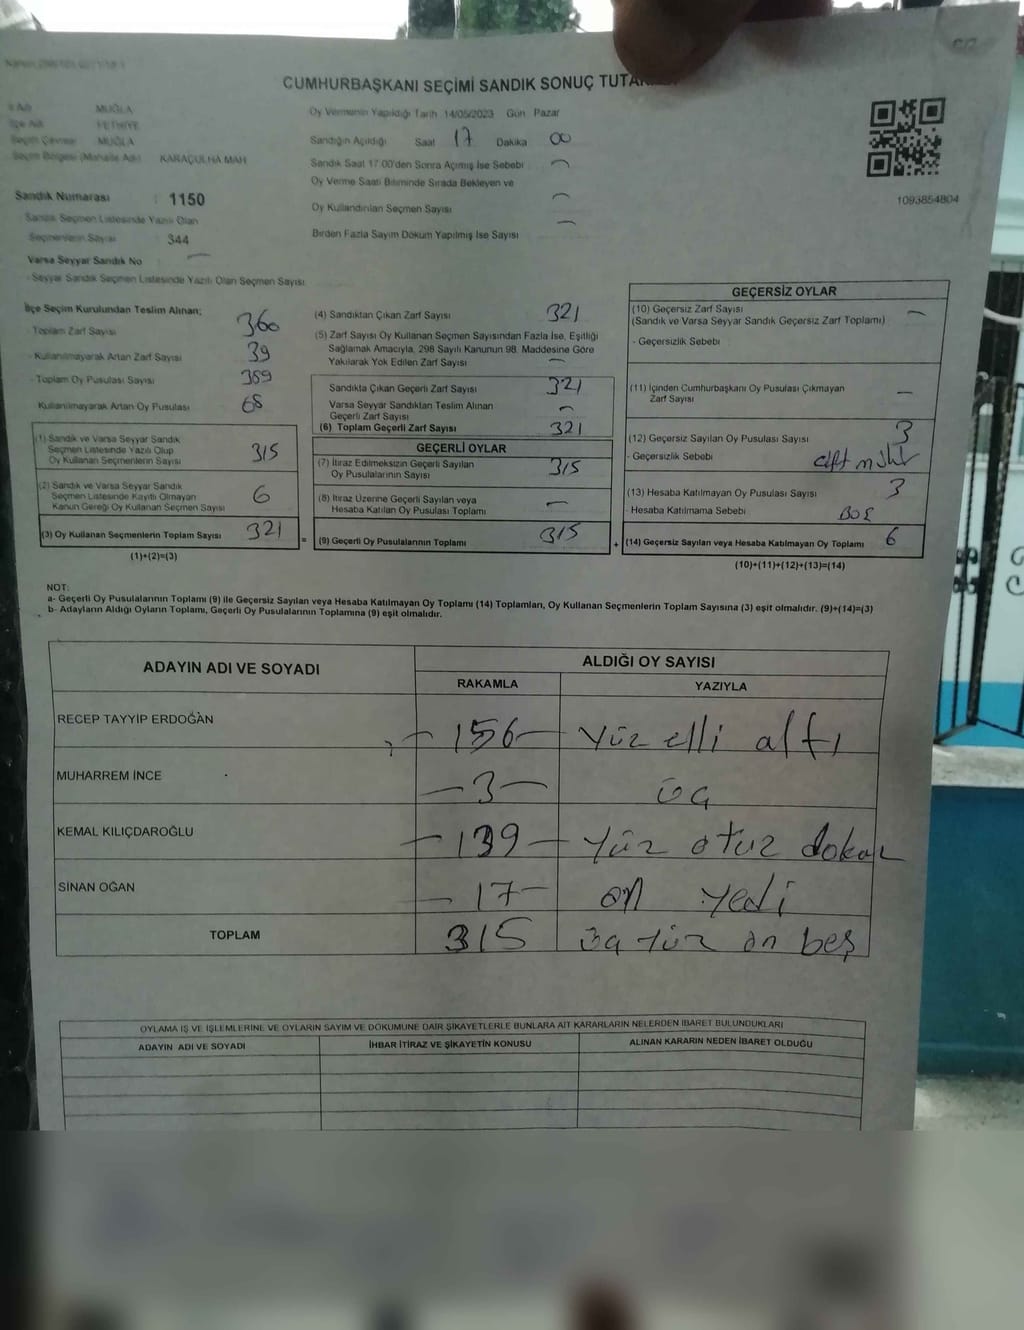 CUMHURBAŞKANI SEÇİMİ SANDIK SONUÇ
İl Adı MUĞLA
İlçe Adı FETHİYE
Seçim Çevresi MUĞLA
Seçim Bölgesi (Mahalle Adı) KARAÇULHA MAH
Sandık Numarası : 1150
Sandık Seçmen Listesinde Yazılı Olan
Seçmenlerin Sayısı : 344
Varsa Seyyar Sandık No
- Seyyar Sandık Seçmen Listesinde Yazılı Olan Seçmen Sayısı
Oy Vermenin Yapıldığı Tarih 14/05/2023 Gün Pazar
Sandığın Açıldığı Saat 17 Dakika 00
Sandık Saat 17:00'den Sonra Açımış İse Sebebi
Oy Verme Saati Bitiminde Sırada Bekleyen ve
Oy Kullandırılan Seçmen Sayısı
Birden Fazla Sayım Döküm Yapılmış İse Sayısı
1093854804
İlçe Seçim Kurulundan Teslim Alınan;
- Toplam Zarf Sayısı 360
- Kullanılmayarak Artan Zarf Sayısı 39
- Toplam Oy Pusulası Sayısı 389
Kullanılmayarak Artan Oy Pusulası 68
(1) Sandık ve Varsa Seyyar Sandık
Seçmen Listesinde Yazılı Olup
Oy Kullanan Seçmenlerin Sayısı 315
(2) Sandık ve Varsa Seyyar Sandık
Seçmen Listesinde Kayıtlı Olmayan
Kanun Gereği Oy Kullanan Seçmen Sayısı 6
(3) Oy Kullanan Seçmenlerin Toplam Sayısı 321
(1)+(2)=(3)
(4) Sandıktan Çıkan Zarf Sayısı 321
(5) Zarf Sayısı Oy Kullanan Seçmen Sayısından Fazla İse, Eşitliği
Sağlamak Amacıyla, 298 Sayılı Kanunun 98. Maddesine Göre
Yakılarak Yok Edilen Zarf Sayısı
Sandıkta Çıkan Geçerli Zarf Sayısı 321
Varsa Seyyar Sandıktan Teslim Alınan
Geçerli Zarf Sayısı
(6) Toplam Geçerli Zarf Sayısı 321
GEÇERLİ OYLAR
(7) İtiraz Edilmeksizin Geçerli Sayılan
Oy Pusulalarının Sayısı 315
(8) İtiraz Üzerine Geçerli Sayılan veya
Hesaba Katılan Oy Pusulası Toplamı
= (9) Geçerli Oy Pusulalarının Toplamı 315
GEÇERSİZ OYLAR
(10) Geçersiz Zarf Sayısı
(Sandık ve Varsa Seyyar Sandık Geçersiz Zarf Toplamı)
- Geçersizlik Sebebi
(11) İçinden Cumhurbaşkanı Oy Pusulası Çıkmayan
Zarf Sayısı
(12) Geçersiz Sayılan Oy Pusulası Sayısı 3
- Geçersizlik Sebebi çift mühür
(13) Hesaba Katılmayan Oy Pusulası Sayısı 3
- Hesaba Katılmama Sebebi BOŞ
+ (14) Geçersiz Sayılan veya Hesaba Katılmayan Oy Toplamı 6
(10)+(11)+(12)+(13)=(14)
NOT:
a- Geçerli Oy Pusulalarının Toplamı (9) ile Geçersiz Sayılan veya Hesaba Katılmayan Oy Toplamı (14) Toplamları, Oy Kullanan Seçmenlerin Toplam Sayısına (3) eşit olmalıdır. (9)+(14)=(3)
b- Adayların Aldığı Oyların Toplamı, Geçerli Oy Pusulalarının Toplamına (9) eşit olmalıdır.
ADAYIN ADI VE SOYADI ALDIĞI OY SAYISI
RAKAMLA YAZIYLA
RECEP TAYYİP ERDOĞAN - 156 - Yüz elli altı
MUHARREM İNCE - 3 - üç
KEMAL KILIÇDAROĞLU - 139 - Yüz otuz dokuz
SİNAN OĞAN - 17 - on yedi
TOPLAM 315 üç yüz on beş
OYLAMA İŞ VE İŞLEMLERİNE VE OYLARIN SAYIM VE DÖKÜMÜNE DAİR ŞİKAYETLERLE BUNLARA AİT KARARLARIN NELERDEN İBARET BULUNDUKLARI
ADAYIN ADI VE SOYADI İHBAR İTİRAZ VE ŞİKAYETİN KONUSU ALINAN KARARIN NEDEN İBARET OLDUĞU